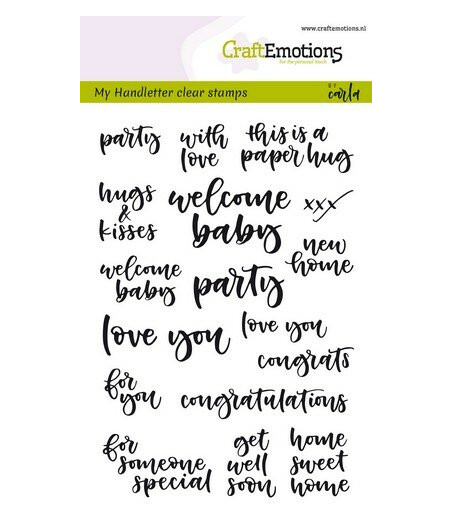 www.craftemotions.nl
CraftEmotions
for the personal touch
My Handletter clear stamps
BY
carla
party
with
love
this is a
paper hug
hugs
&
kisses
welcome
baby
xxx
new
home
welcome
baby
party
love you
love you
congrats
for
you
congratulations
for
someone
special
get
well
soon
home
sweet
home